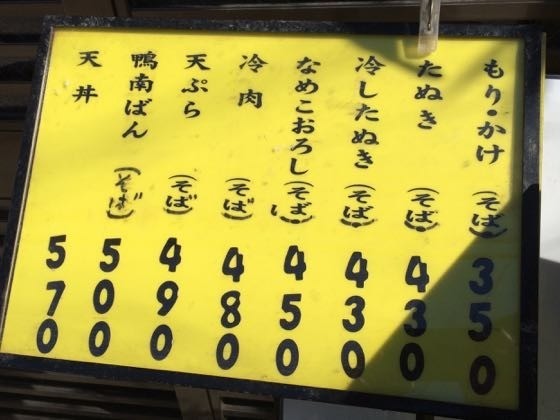 もり・かけ(そば)350
たぬき(そば)430
冷したぬき(そば)430
なめこおろし(そば)450
冷肉(そば)480
天ぷら(そば)490
鴨南ばん(そば)500
天丼570